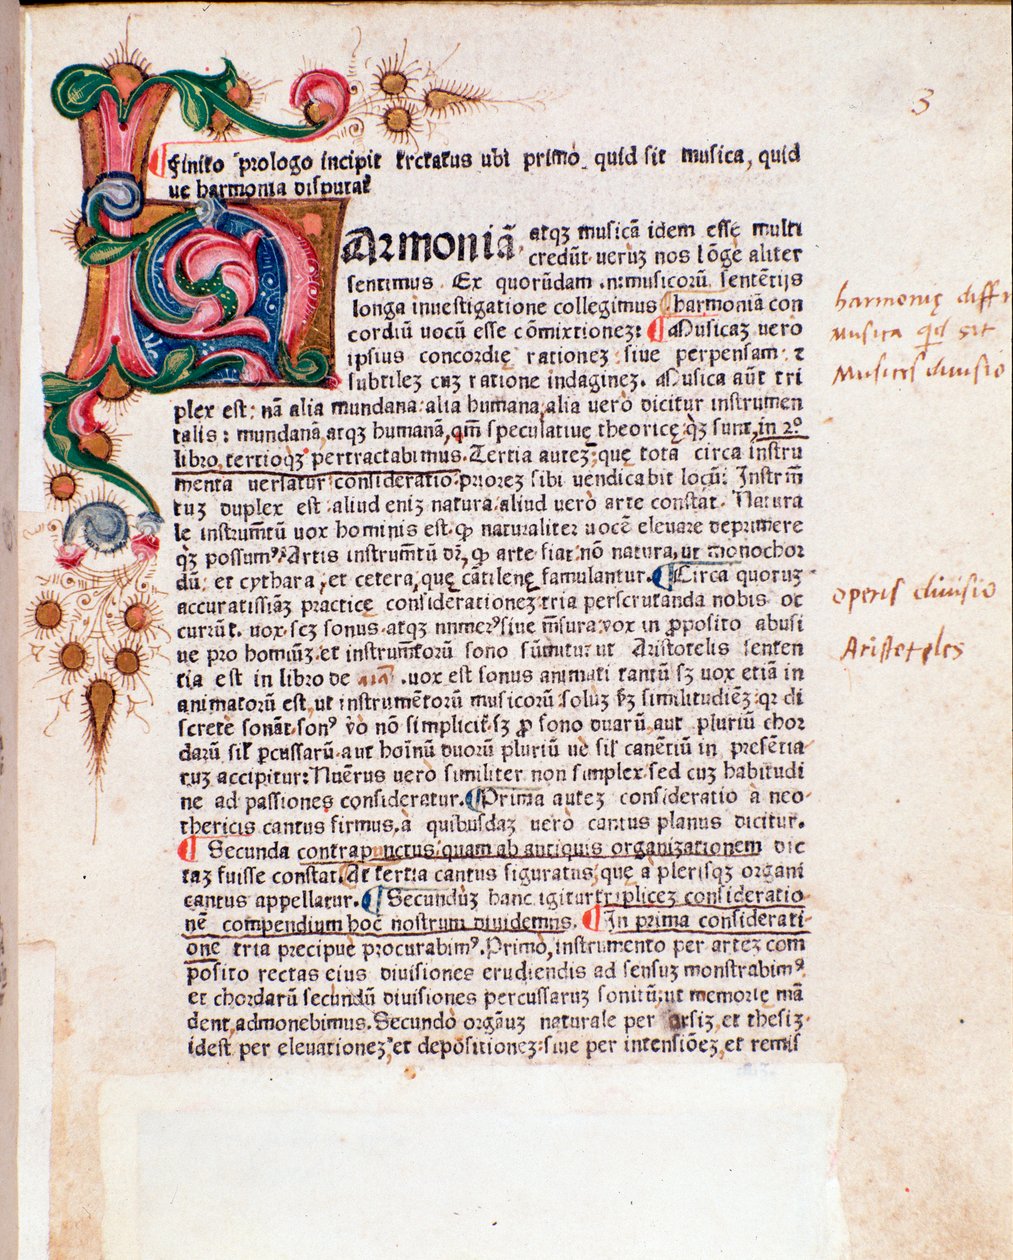 3
Finito prologo incipit trctatus ubi primo quid sit musica, quid
ue harmonia disputat̃
HARmoniã atqꝫ musicã idem esse multi
credũt ueruꝫ nos lõge aliter
sentimus. Ex quorũdam .n. musicorũ sentẽtijs
longa inuestigatione collegimus harmoniã con
cordiũ uocũ esse cõmixtioneꝫ: Musicaꝫ uero
ipsius concordię rationeꝫ siue perpensam ⁊
subtileꝫ cuꝫ ratione indagineꝫ. Musica aũt tri
plex est: nã alia mundana: alia humana, alia uero dicitur instrumen
talis: mundanã, atqꝫ humanã, qm̃ speculatiuę theoricę qꝫ sunt, in 2º
libro, tertioqꝫ pertractabimus. Tertia auteꝫ, que tota circa instru
menta uersatur consideratio: prioreꝫ sibi uendicabit locũ: Instrm̃
tuꝫ duplex est: aliud eniꝫ natura: aliud uerò arte constat. Natura
le instrumẽtũ uox hominis est. ꝙ naturaliter uocẽ eleuare deprimere
qꝫ possumꝰ. Artis instrumẽtũ dr̃, ꝙ arte fiat: nõ natura, ut monochor
dũ: et cythara, et cetera, quę cãtilenę famulantur. Circa quoruꝫ
accuratissiãꝫ practice considerationeꝫ: tria perscrutanda nobis oc
currũt. uox. scꝫ sonus. atqꝫ numerꝰ siue mẽsura: uox in ꝓposito abusi
ue pro hominũꝫ. et instrumẽtorũ sono sumitur: ut Aristotelis senten
tia est in libro de aĩa .uox est sonus animati tantũ sꝫ uox etiã in
animatorũ est, ut instrumẽtorũ musicorũ soluꝫ ꝑꝫ similitudiẽꝫ: qꝛ di
screte sonãt. sonꝰ v̉o nõ simplicit̃. sꝫ ꝓ sono duarũ, aut pluriũ chor
darũ sil̃ ꝑcussarũ. aut hoĩnũ duorũ pluriũ ue sil̃ canẽtiũ in presẽtia
ruꝫ accipitur: Nuẽrus uero similiter non simplex: sed cuꝫ habitudi
ne ad passiones consideratur. Prima auteꝫ consideratio a neo
thericis cantus firmus. à quibusdaꝫ uerò cantus planus dicitur.
Secunda contrapunctus: quam ab antiquis organizationem dic
taꝫ fuisse constat. At tertia cantus figuratus, que a plerisqꝫ organi
cantus appellatur. Secundũꝫ hanc igitur triplicez consideratio
nẽ compendium hoc nostrum diuidemus. In prima considerati
one tria precipuè procurabimꝰ. Primò, instrumento per arteꝫ com
posito rectas eius diuisiones erudiendis ad sensuꝫ monstrabimꝰ
et chordarũ secundũ diuisiones percussaruꝫ sonitũ: ut memorie mã
dent, admonebimus. Secundò orgãuꝫ naturale per arsiꝫ, et thesiꝫ
idest per eleuationeꝫ, et depositioneꝫ: siue per intensiõeꝫ, et remis
harmonię diffi
Musica qd sit
Musices diuisio
operis diuisio
Aristoteles